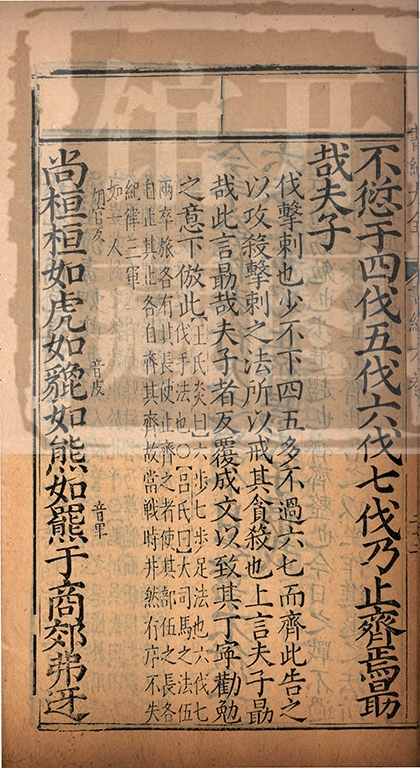 不愆于四伐五伐六伐七伐乃止齊焉勗
哉夫子
伐擊刺也少不下四五多不過六七而齊此告之
以攻殺擊刺之法所以戒其貪殺也上言夫子勗
哉此言勗哉夫子者反覆成文以致其丁寧勸勉
之意下倣此
王氏炎曰六步七步足法也六伐七
伐手法也○呂氏曰大司馬之法伍
兩卒旅各有長使止齊之者使其部伍之長各
自止其止各自齊其齊故當戰時井然有序不失
紀律三軍
如一人
尚桓桓胡官反如虎如貔音皮如熊如羆音于商郊弗迓